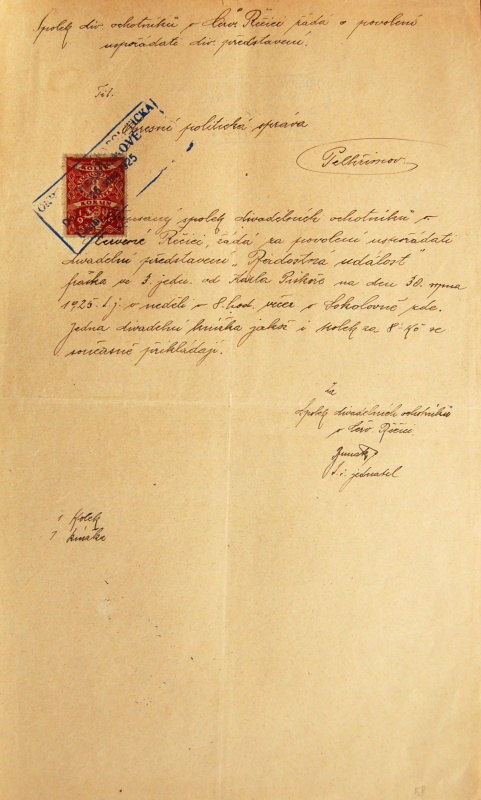 Spolek div. ochotníků v Červ. Řečici žádá o povolení
uspořádati div. představení.
Tit.
Okresně politická správa
Pelhřimov
KOLEK
KORUN
spolek divadelních ochotníků v
Červené Řečici, žádá za povolení uspořádati
divadelní představení „Radostna událost"
fraška ve 3. jedn. od Karla Piskoře na den 30. srpna
1925 t.j. v neděli v 8. hod. večer v Sokolovně zde.
Jedna divadelní knížka jakož i kolek za 8 Kč se
současně přikládají.
za
Spolek divadelních ochotníků
v Červ. Řečici
t.č. jednatel
1 Kolek
1 knížka